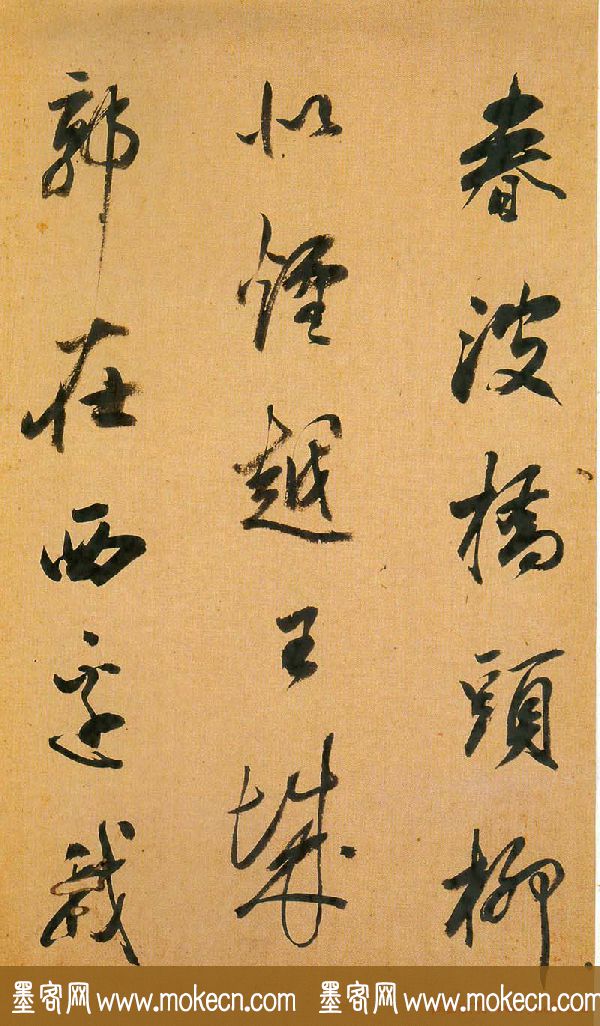 春波橋頭柳
似煙越王城
郭在西邊
墨客网 www.mokecn.com 墨客网 www.mokecn.com